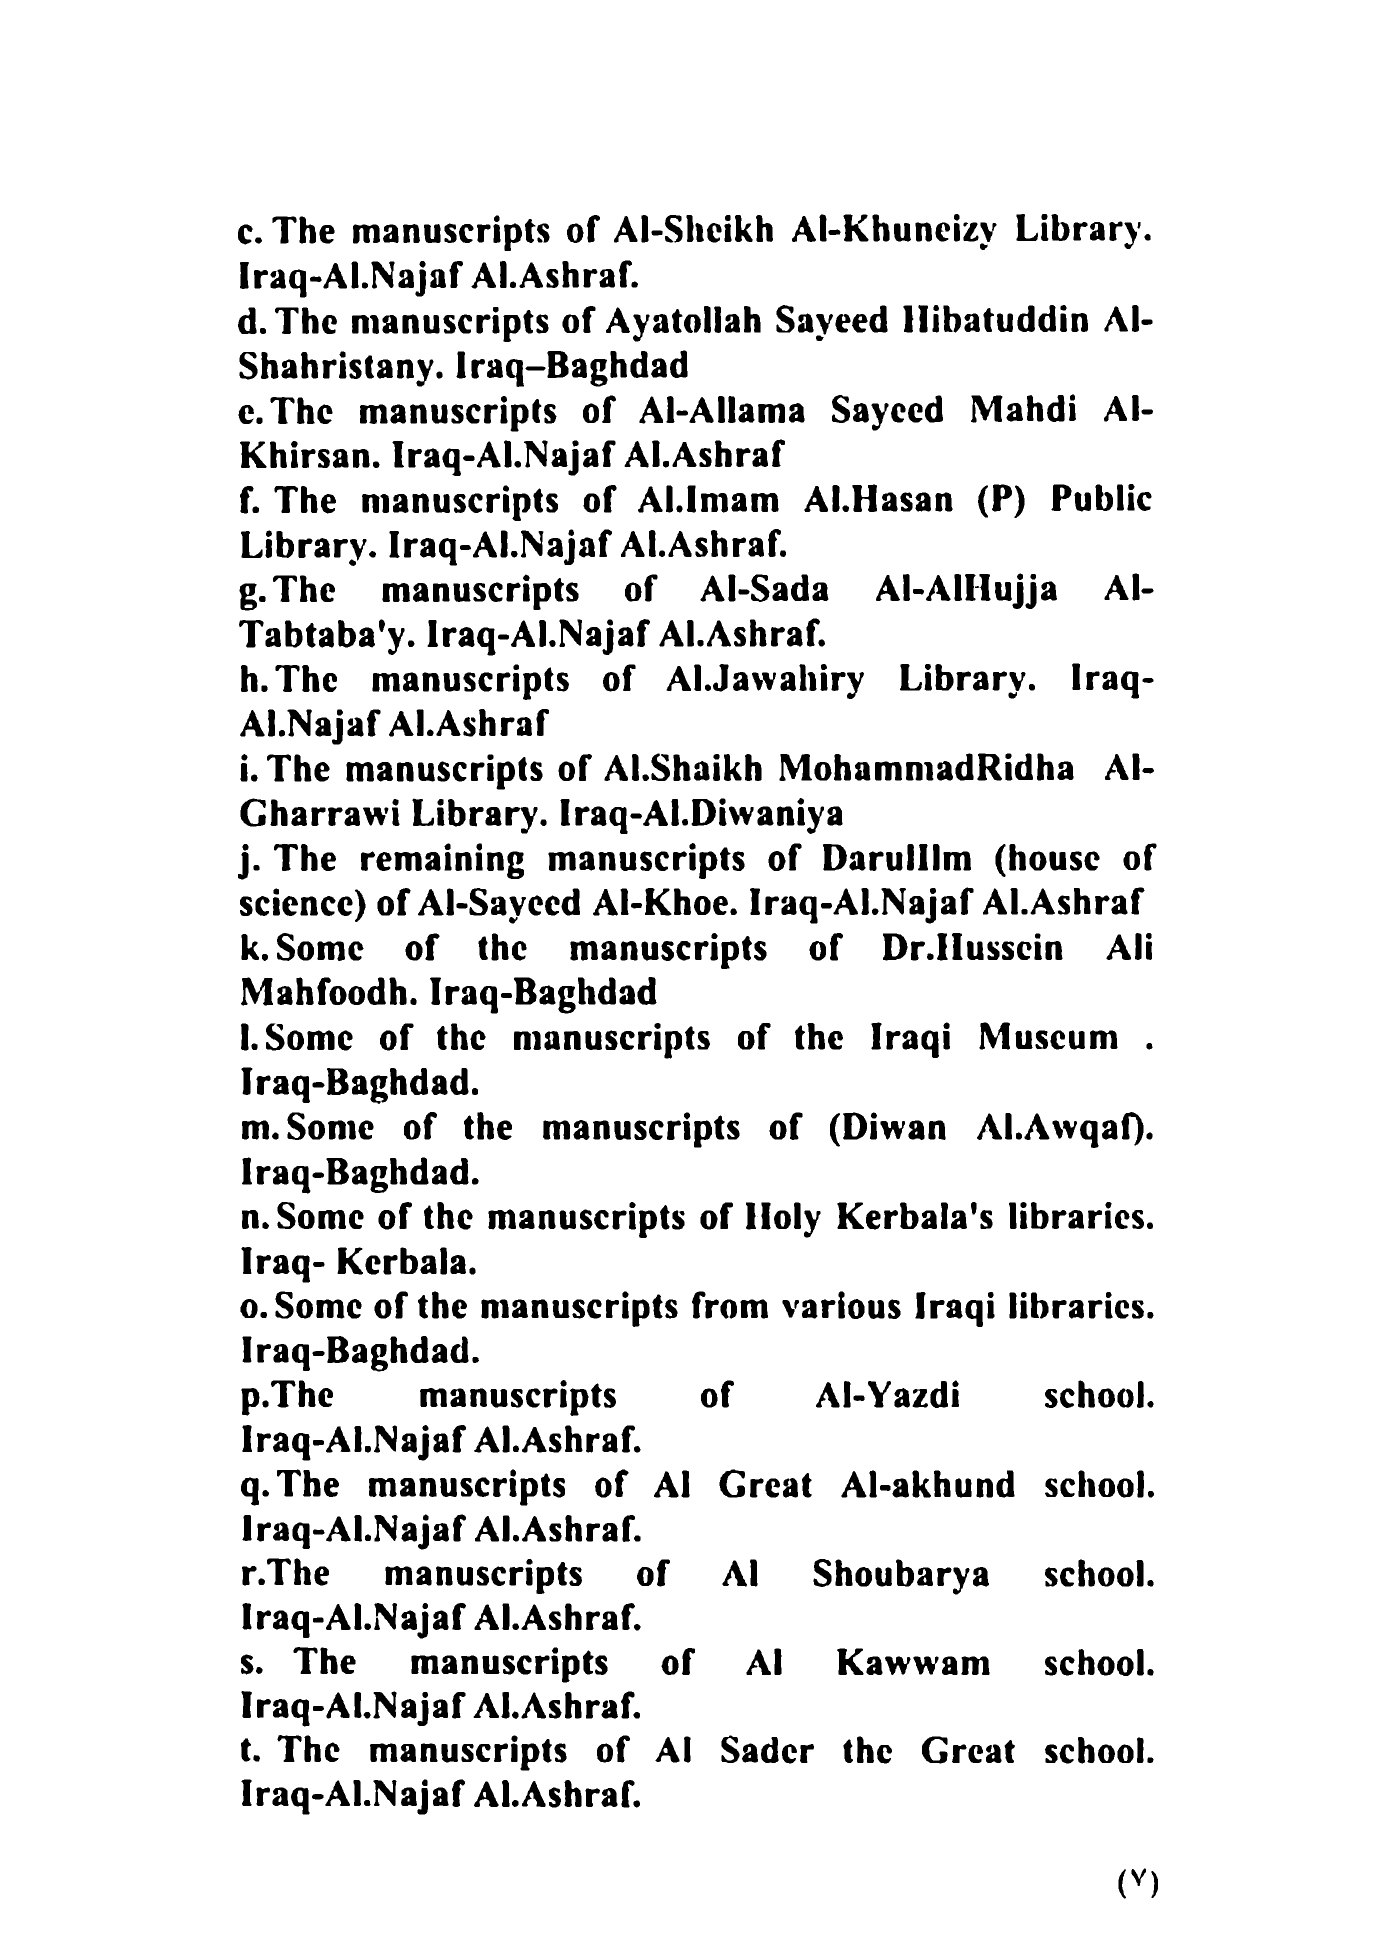 c. The manuscripts of Al-Sheikh Al-Khuneizy Library.
Iraq-Al.Najaf Al.Ashraf.
d. The manuscripts of Ayatollah Sayeed Hibatuddin Al-
Shahristany. Iraq–Baghdad
e. The manuscripts of Al-Allama Sayeed Mahdi Al-
Khirsan. Iraq-Al.Najaf Al.Ashraf
f. The manuscripts of Al.Imam Al.Hasan (P) Public
Library. Iraq-Al.Najaf Al.Ashraf.
g. The manuscripts of Al-Sada Al-AlHujja Al-
Tabtaba'y. Iraq-Al.Najaf Al.Ashraf.
h. The manuscripts of Al.Jawahiry Library. Iraq-
Al.Najaf Al.Ashraf
i. The manuscripts of Al.Shaikh MohammadRidha Al-
Gharrawi Library. Iraq-Al.Diwaniya
j. The remaining manuscripts of DarulIlm (house of
science) of Al-Sayeed Al-Khoe. Iraq-Al.Najaf Al.Ashraf
k. Some of the manuscripts of Dr.Hussein Ali
Mahfoodh. Iraq-Baghdad
l. Some of the manuscripts of the Iraqi Museum .
Iraq-Baghdad.
m. Some of the manuscripts of (Diwan Al.Awqaf).
Iraq-Baghdad.
n. Some of the manuscripts of Holy Kerbala's libraries.
Iraq- Kerbala.
o. Some of the manuscripts from various Iraqi libraries.
Iraq-Baghdad.
p.The manuscripts of Al-Yazdi school.
Iraq-Al.Najaf Al.Ashraf.
q. The manuscripts of Al Great Al-akhund school.
Iraq-Al.Najaf Al.Ashraf.
r.The manuscripts of Al Shoubarya school.
Iraq-Al.Najaf Al.Ashraf.
s. The manuscripts of Al Kawwam school.
Iraq-Al.Najaf Al.Ashraf.
t. The manuscripts of Al Sader the Great school.
Iraq-Al.Najaf Al.Ashraf.
(٧)